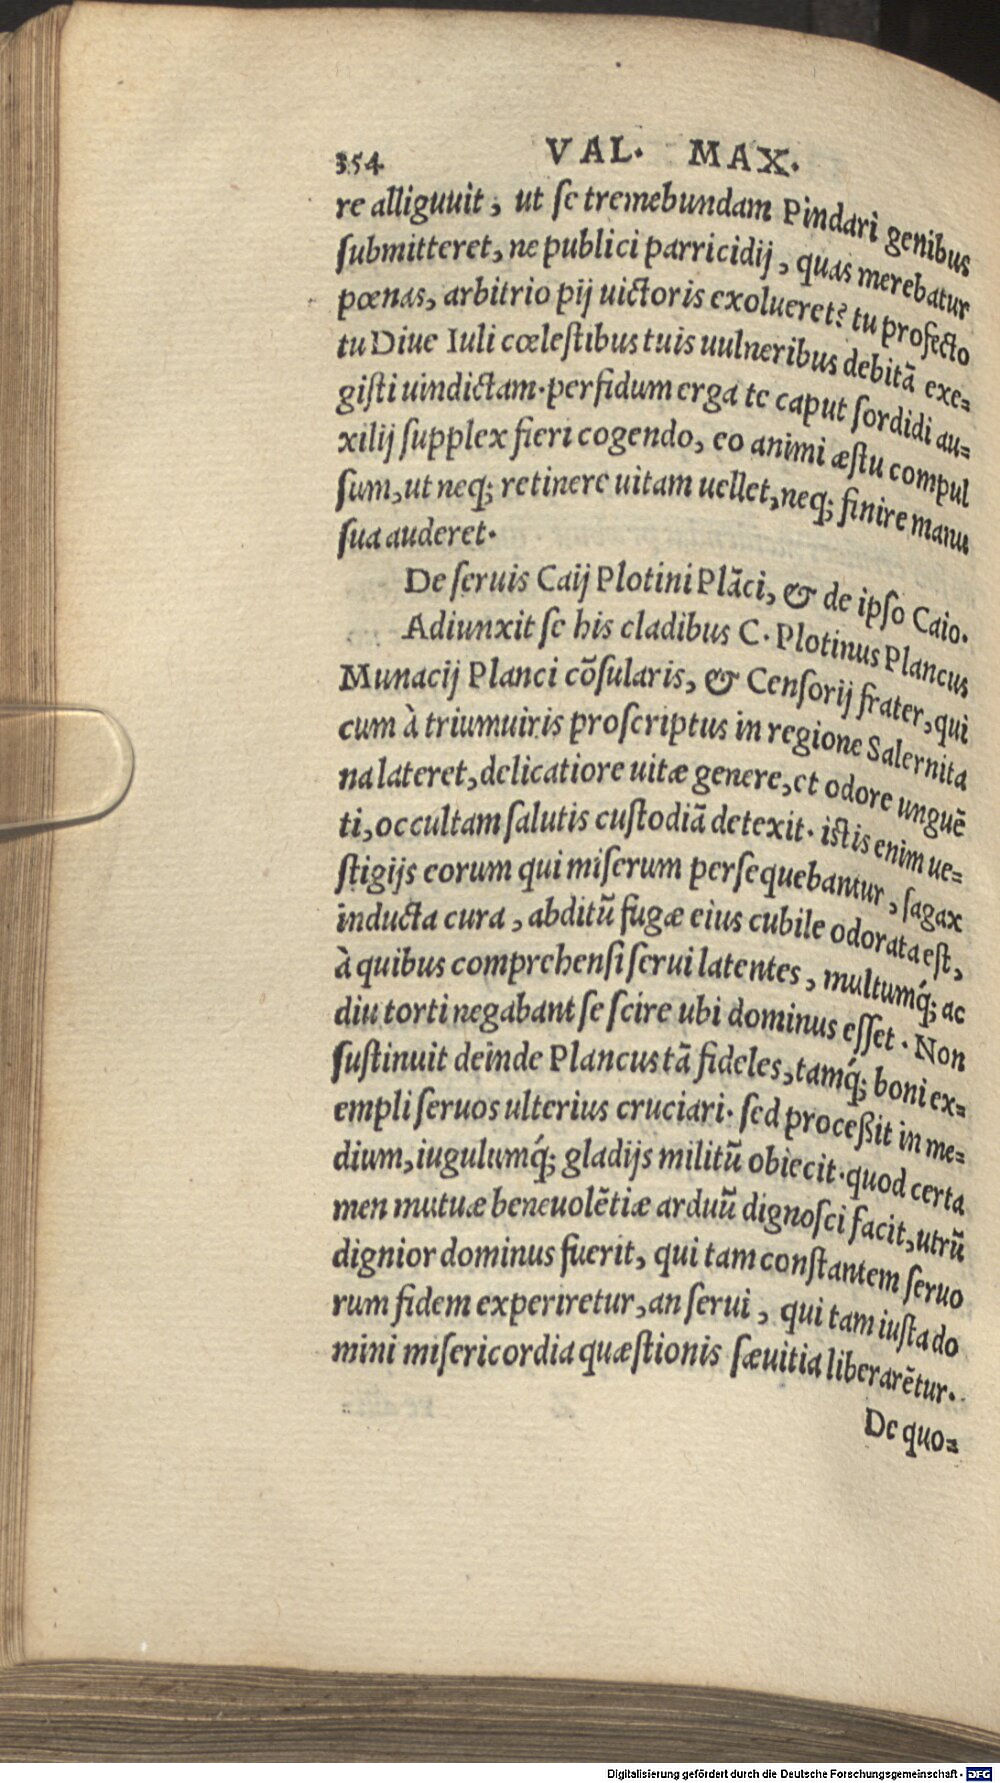 354 VAL. MAX.
re alliguuit, ut se tremebundam Pindari genibus
submitteret, ne publici parricidij, quas merebatur
pœnas, arbitrio pij uictoris exolueret? tu profecto
tu Diue Iuli cœlestibus tuis uulneribus debitã exe=
gisti uindictam. perfidum erga te caput sordidi au=
xilij supplex fieri cogendo, eo animi æstu compul
sum, ut neq; retinere uitam uellet, neq; finire manu
sua auderet.
De seruis Caij Plotini Plãci, & de ipso Caio.
Adiunxit se his cladibus C. Plotinus Plancus
Munacij Planci cõsularis, & Censorij frater, qui
cum à triumuiris proscriptus in regione Salernita
na lateret, delicatiore uitæ genere, et odore unguẽ
ti, occultam salutis custodiã detexit. istis enim ue=
stigijs eorum qui miserum persequebantur, sagax
inducta cura, abditũ fugæ eius cubile odorata est,
à quibus comprehensi serui latentes, multumq́; ac
diu torti negabant se scire ubi dominus esset. Non
sustinuit deinde Plancus tã fideles, tamq́; boni ex=
empli seruos ulterius cruciari. sed proceßit in me=
dium, iugulumq́; gladijs militũ obiecit. quod certa
men mutuæ beneuolẽtiæ arduũ dignosci facit, utrũ
dignior dominus fuerit, qui tam constantem seruo
rum fidem experiretur, an serui, qui tam iusta do
mini misericordia quæstionis sæuitia liberarẽtur.
De quo=
Digitalisierung gefördert durch die Deutsche Forschungsgemeinschaft - DFG